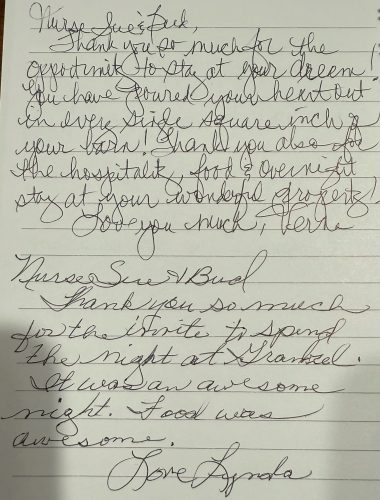 Nurse Sue & Bud,
Thank you so much for the
opportunity to stay at your dream!
You have poured your heart out
in every single square inch of
your barn! Thank you also for
the hospitality, food & overnight
stay at your wonderful property!
Love you much, Verna
Nurse Sue & Bud
Thank you so much
for the invite to spend
the night at
It was an awesome
night. Food was
awesome.
Love Lynda